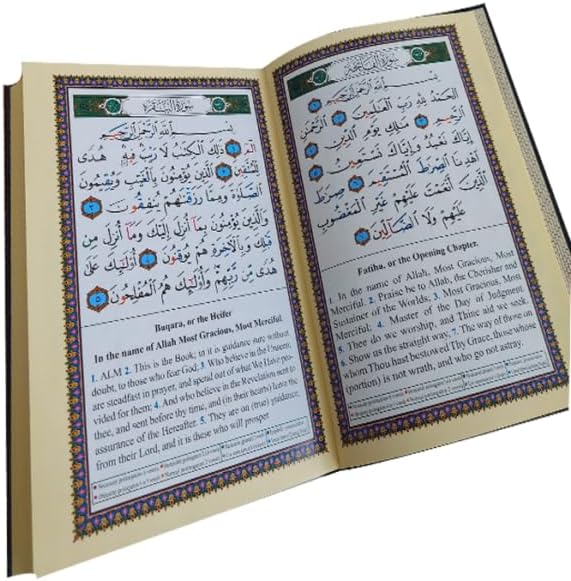 سورة الفاتحة
بسم الله الرحمن الرحيم
الحمد لله رب العلمين ٢ الرحمن
الرحيم ٣ ملك يوم الدين ٤
إياك نعبد وإياك نستعين ٥
اهدنا الصرط المستقيم ٦ صرط
الذين أنعمت عليهم غير المغضوب
عليهم ولا الضالين ٧
Fatiha, or the Opening Chapter.
1. In the name of Allah, Most Gracious, Most
Merciful. 2. Praise be to Allah, the Cherisher and
Sustainer of the Worlds; 3. Most Gracious, Most
Merciful; 4. Master of the Day of Judgment.
5. Thee do we worship, and Thine aid we seek.
6. Show us the straight way, 7. The way of those on
whom Thou hast bestowed Thy Grace, those whose
(portion) is not wrath, and who go not astray.
سورة البقرة
بسم الله الرحمن الرحيم
الم ١ ذلك الكتب لا ريب فيه هدى
للمتقين ٢ الذين يؤمنون بالغيب ويقيمون
الصلاة ومما رزقنهم ينفقون ٣
والذين يؤمنون بما أنزل إليك وما أنزل من
قبلك وبالآخرة هم يوقنون ٤ أولئك على
هدى من ربهم وأولئك هم المفلحون ٥
Baqara, or the Heifer
In the name of Allah Most Gracious, Most Merciful.
1. ALM 2. This is the Book; in it is guidance sure without
doubt, to those who fear God; 3. Who believe in the Unseen,
are steadfast in prayer, and spend out of what We Have pro-
vided for them; 4. And who believe in the Revelation sent to
thee, and sent before thy time, and (in their hearts) have the
assurance of the Hereafter. 5. They are on (true) guidance,
from their Lord, and it is these who will prosper.